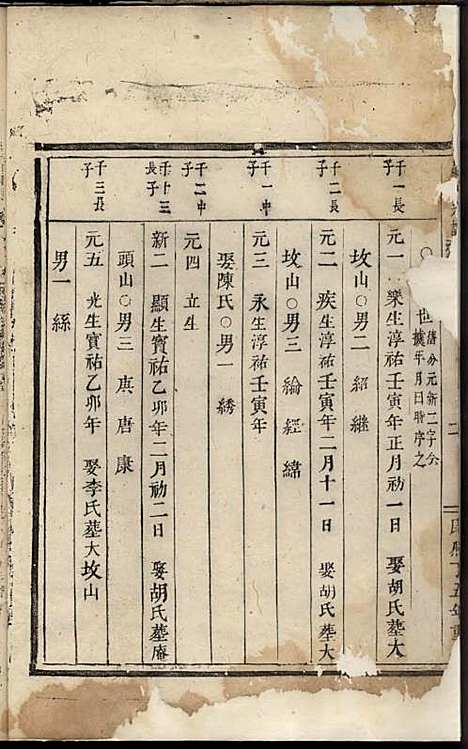 世 二
舊分元新二字今
據年月日時序之
千一長子
元一 樂生淳祐壬寅年正月初一日 娶胡氏葬大
坟山○男二 紹 繼
千二長子
元二 疾生淳祐壬寅年二月十一日 娶胡氏葬大
坟山○男三 綸 經 緯
千一中子
元三 永生淳祐壬寅年
娶陳氏○男一 綉
千二中子
元四 立生
千十三長子
新二 顯生寳祐乙卯年二月初二日 娶胡氏葬庵
頭山○男三 庚 唐 康
千三長子
元五 光生寳祐乙卯年 娶李氏葬大坟山
男一 絲